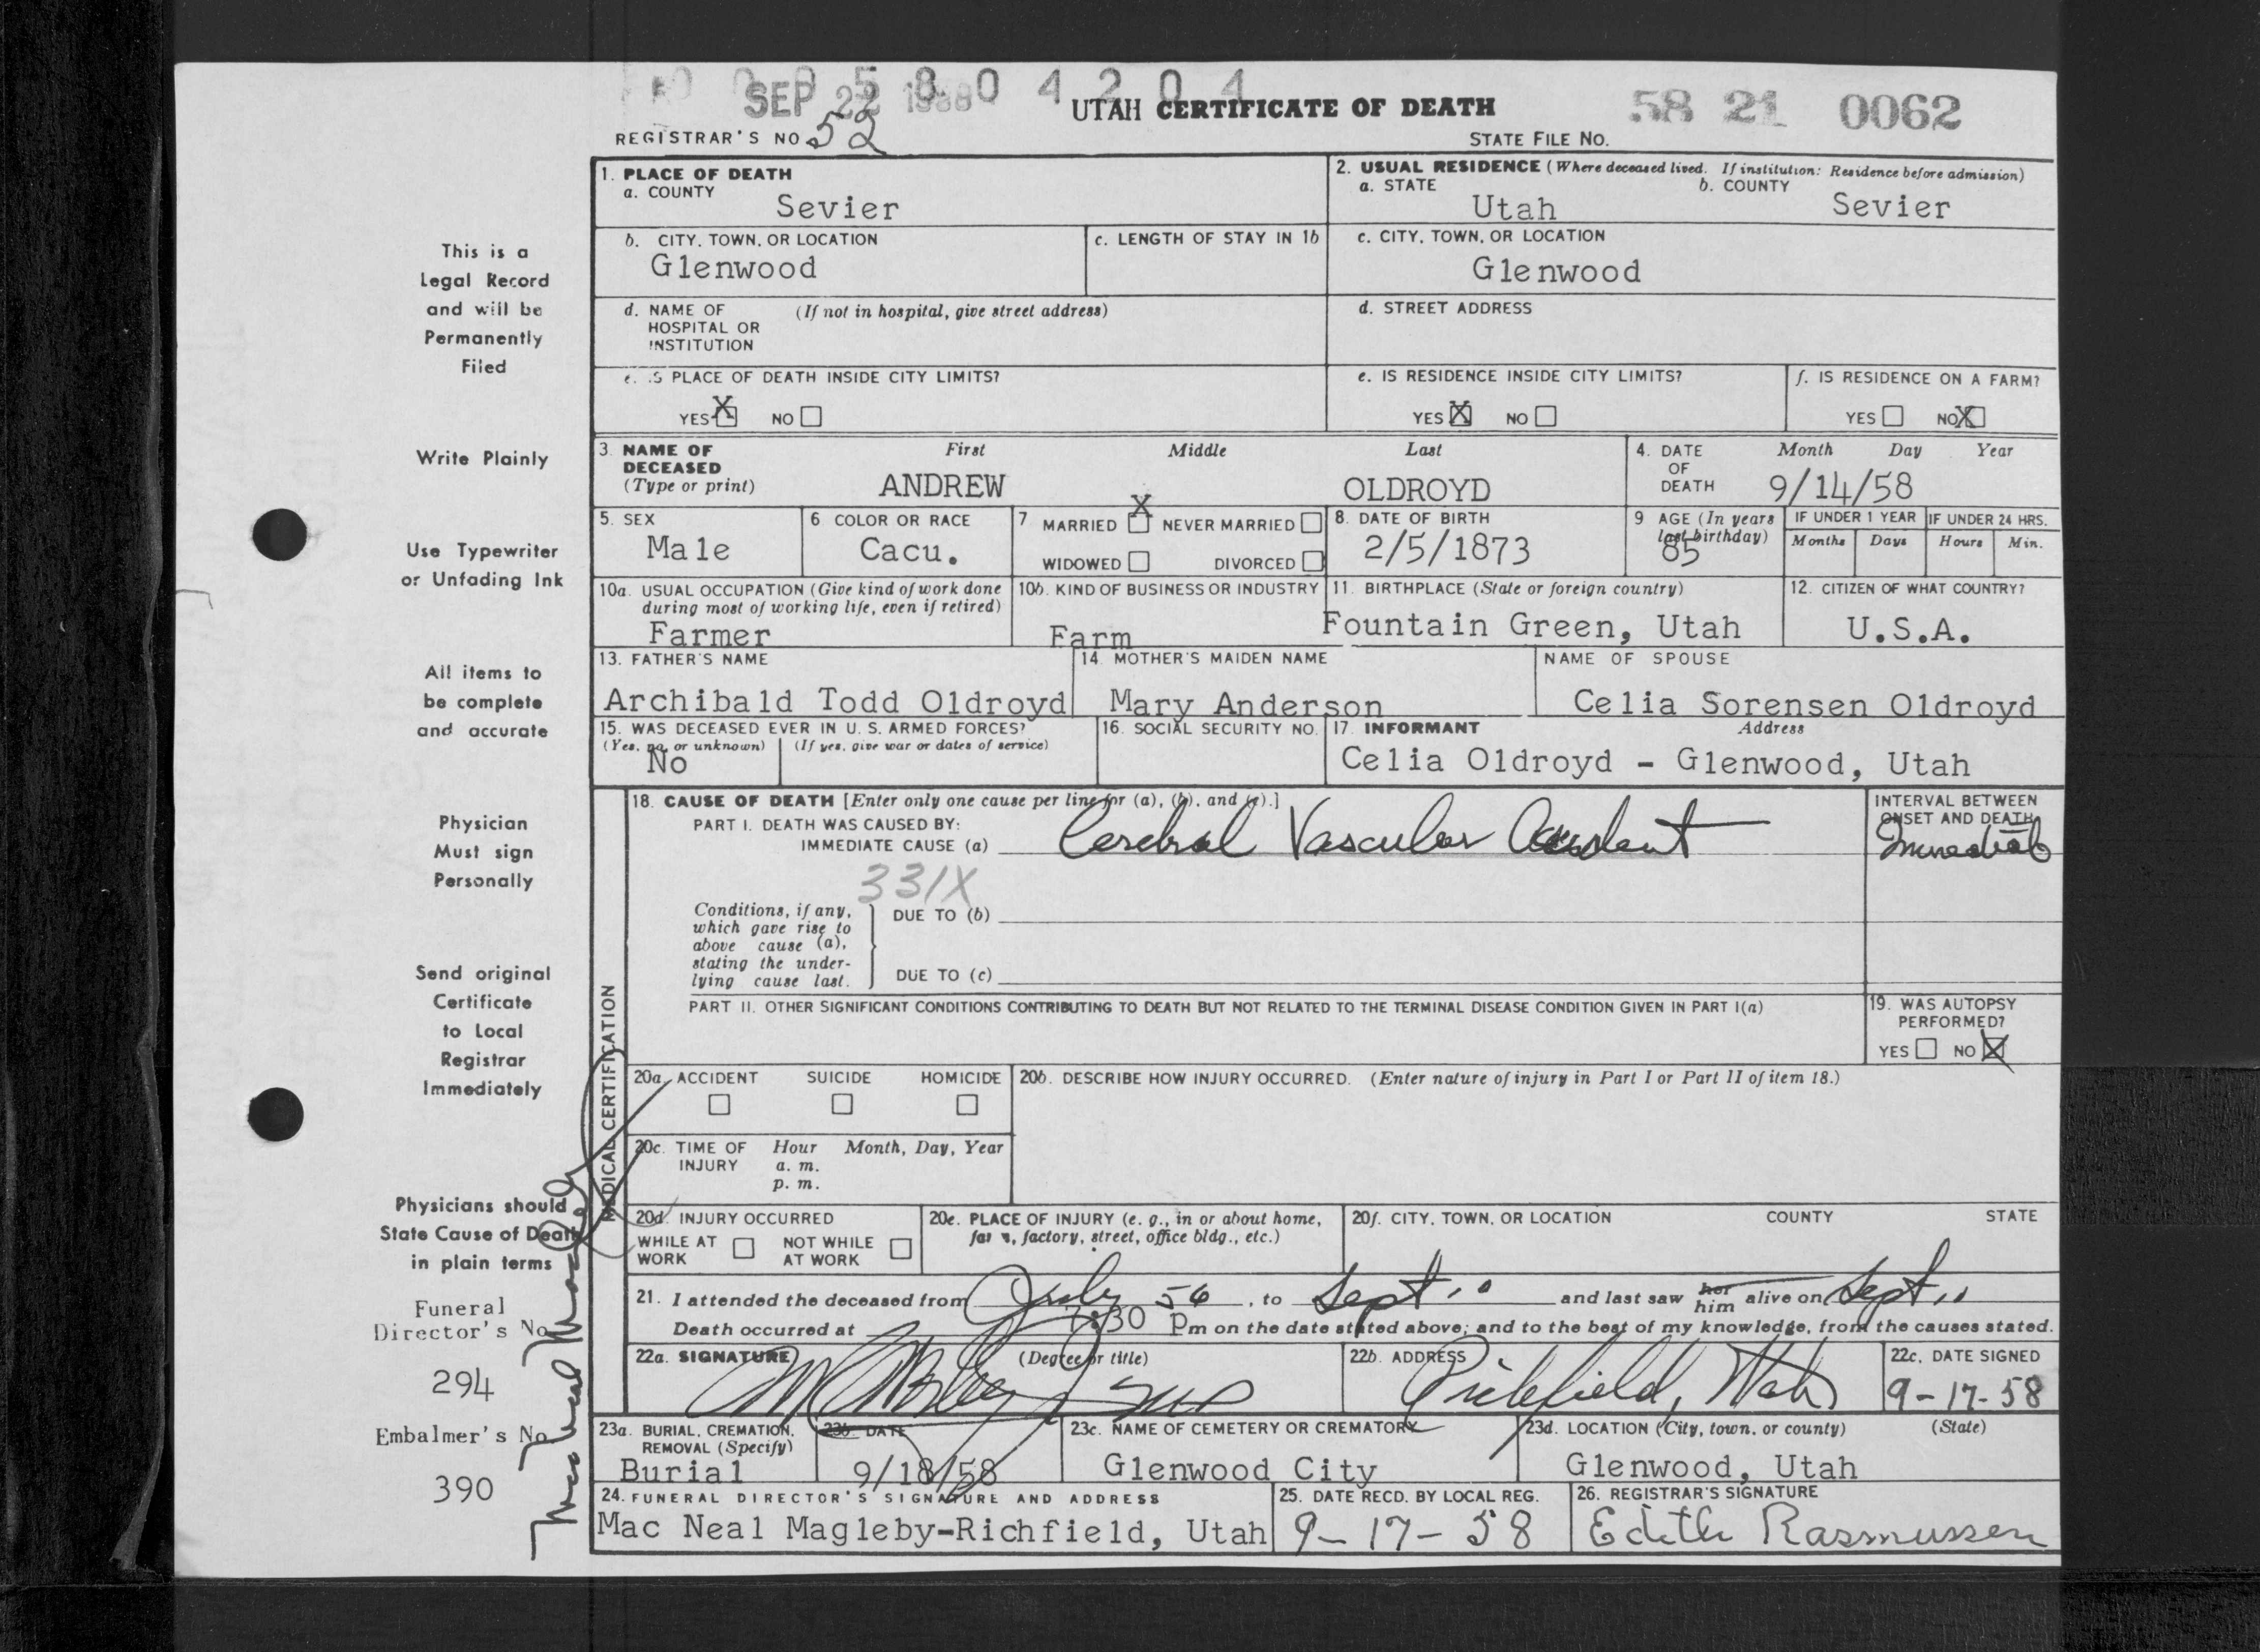 SEP 22 1958 0 4 2 0 4
UTAH CERTIFICATE OF DEATH 58 21 0062
REGISTRAR'S NO 52 STATE FILE No.
This is a
Legal Record
and will be
Permanently
Filed
Write Plainly
Use Typewriter
or Unfading Ink
All items to
be complete
and accurate
Physician
Must sign
Personally
Send original
Certificate
to Local
Registrar
Immediately
Physicians should
State Cause of Death
in plain terms
Funeral
Director's No
294
Embalmer's No
390
1. PLACE OF DEATH
a. COUNTY
Sevier
2. USUAL RESIDENCE (Where deceased lived. If institution: Residence before admission)
a. STATE b. COUNTY
Utah Sevier
b. CITY, TOWN, OR LOCATION c. LENGTH OF STAY IN 1b
Glenwood
c. CITY, TOWN, OR LOCATION
Glenwood
d. NAME OF (If not in hospital, give street address)
HOSPITAL OR
INSTITUTION
d. STREET ADDRESS
e. IS PLACE OF DEATH INSIDE CITY LIMITS?
YES X NO
e. IS RESIDENCE INSIDE CITY LIMITS?
YES X NO
f. IS RESIDENCE ON A FARM?
YES NO X
3. NAME OF First Middle Last
DECEASED
(Type or print) ANDREW OLDROYD
4. DATE Month Day Year
OF
DEATH 9/14/58
5. SEX
Male
6 COLOR OR RACE
Cacu.
7 MARRIED X NEVER MARRIED
WIDOWED DIVORCED
8. DATE OF BIRTH
2/5/1873
9 AGE (In years
last birthday)
85
IF UNDER 1 YEAR IF UNDER 24 HRS.
Months Days Hours Min.
10a. USUAL OCCUPATION (Give kind of work done
during most of working life, even if retired)
Farmer
10b. KIND OF BUSINESS OR INDUSTRY
Farm
11. BIRTHPLACE (State or foreign country)
Fountain Green, Utah
12. CITIZEN OF WHAT COUNTRY?
U.S.A.
13. FATHER'S NAME
Archibald Todd Oldroyd
14. MOTHER'S MAIDEN NAME
Mary Anderson
NAME OF SPOUSE
Celia Sorensen Oldroyd
15. WAS DECEASED EVER IN U. S. ARMED FORCES?
(Yes, no, or unknown) (If yes, give war or dates of service)
No
16. SOCIAL SECURITY NO.
17. INFORMANT Address
Celia Oldroyd - Glenwood, Utah
MEDICAL CERTIFICATION
18. CAUSE OF DEATH [Enter only one cause per line for (a), (b), and (c).]
PART I. DEATH WAS CAUSED BY:
IMMEDIATE CAUSE (a) Cerebral Vascular Accident
INTERVAL BETWEEN
ONSET AND DEATH
Immediate
331X
Conditions, if any,
which gave rise to
above cause (a),
stating the under-
lying cause last.
DUE TO (b)
DUE TO (c)
PART II. OTHER SIGNIFICANT CONDITIONS CONTRIBUTING TO DEATH BUT NOT RELATED TO THE TERMINAL DISEASE CONDITION GIVEN IN PART I(a)
19. WAS AUTOPSY
PERFORMED?
YES NO X
20a. ACCIDENT SUICIDE HOMICIDE
20b. DESCRIBE HOW INJURY OCCURRED. (Enter nature of injury in Part I or Part II of item 18.)
20c. TIME OF Hour Month, Day, Year
INJURY a. m.
p. m.
20d. INJURY OCCURRED
WHILE AT NOT WHILE
WORK AT WORK
20e. PLACE OF INJURY (e. g., in or about home,
farm, factory, street, office bldg., etc.)
20f. CITY, TOWN, OR LOCATION COUNTY STATE
21. I attended the deceased from July 56, to Sept. and last saw her him alive on Sept
Death occurred at 7:30 Pm on the date stated above; and to the best of my knowledge, from the causes stated.
22a. SIGNATURE (Degree or title)
22b. ADDRESS
Richfield, Utah
22c. DATE SIGNED
9-17-58
23a. BURIAL, CREMATION,
REMOVAL (Specify)
Burial
23b. DATE
9/18/58
23c. NAME OF CEMETERY OR CREMATORY
Glenwood City
23d. LOCATION (City, town, or county) (State)
Glenwood, Utah
24. FUNERAL DIRECTOR'S SIGNATURE AND ADDRESS
Mac Neal Magleby-Richfield, Utah
25. DATE RECD. BY LOCAL REG.
9-17-58
26. REGISTRAR'S SIGNATURE
Edith Rasmussen
Mac Neal Magleby